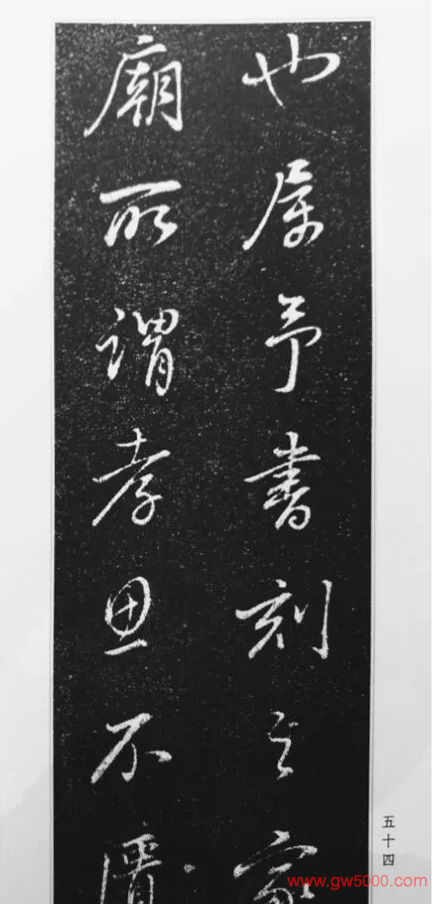 也属予书刻之家
廟所謂孝思不匱
五十四
www.gw5000.com